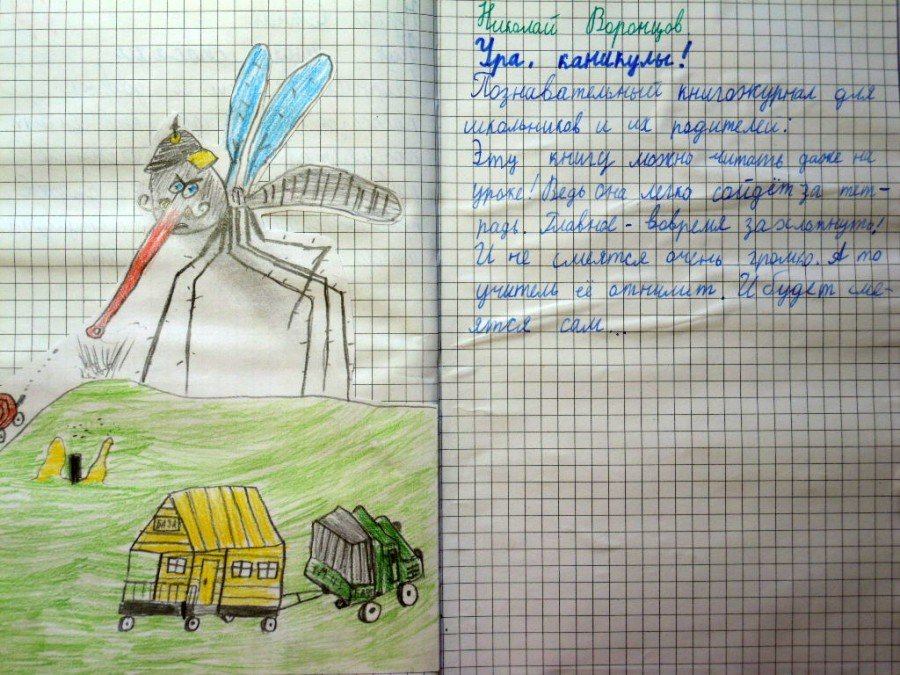 Николай Воронцов
Ура, каникулы!
Познавательный книгожурнал для
школьников и их родителей:
Эту книгу можно читать даже на
уроке! Ведь она легко сойдёт за тет-
радь. Главное - вовремя захлопнуть!
И не смеятся очень громко. А то
учитель её отнимит. И будет сме-
ятся сам...
БАЗА